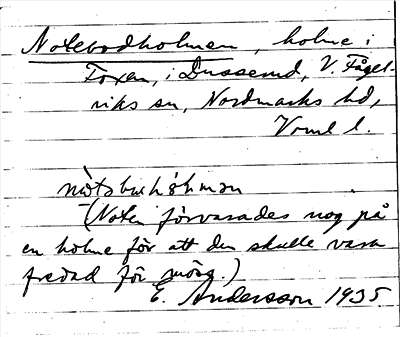 Notebodholmen, holme i
Foxen, i Dusserud, V. Fågel-
viks sn, Nordmarks hd,
Vrml l.
(Noten förvarades nog på
en holme för att den skulle vara
fredad för möss.)
E. Andersson 1935.